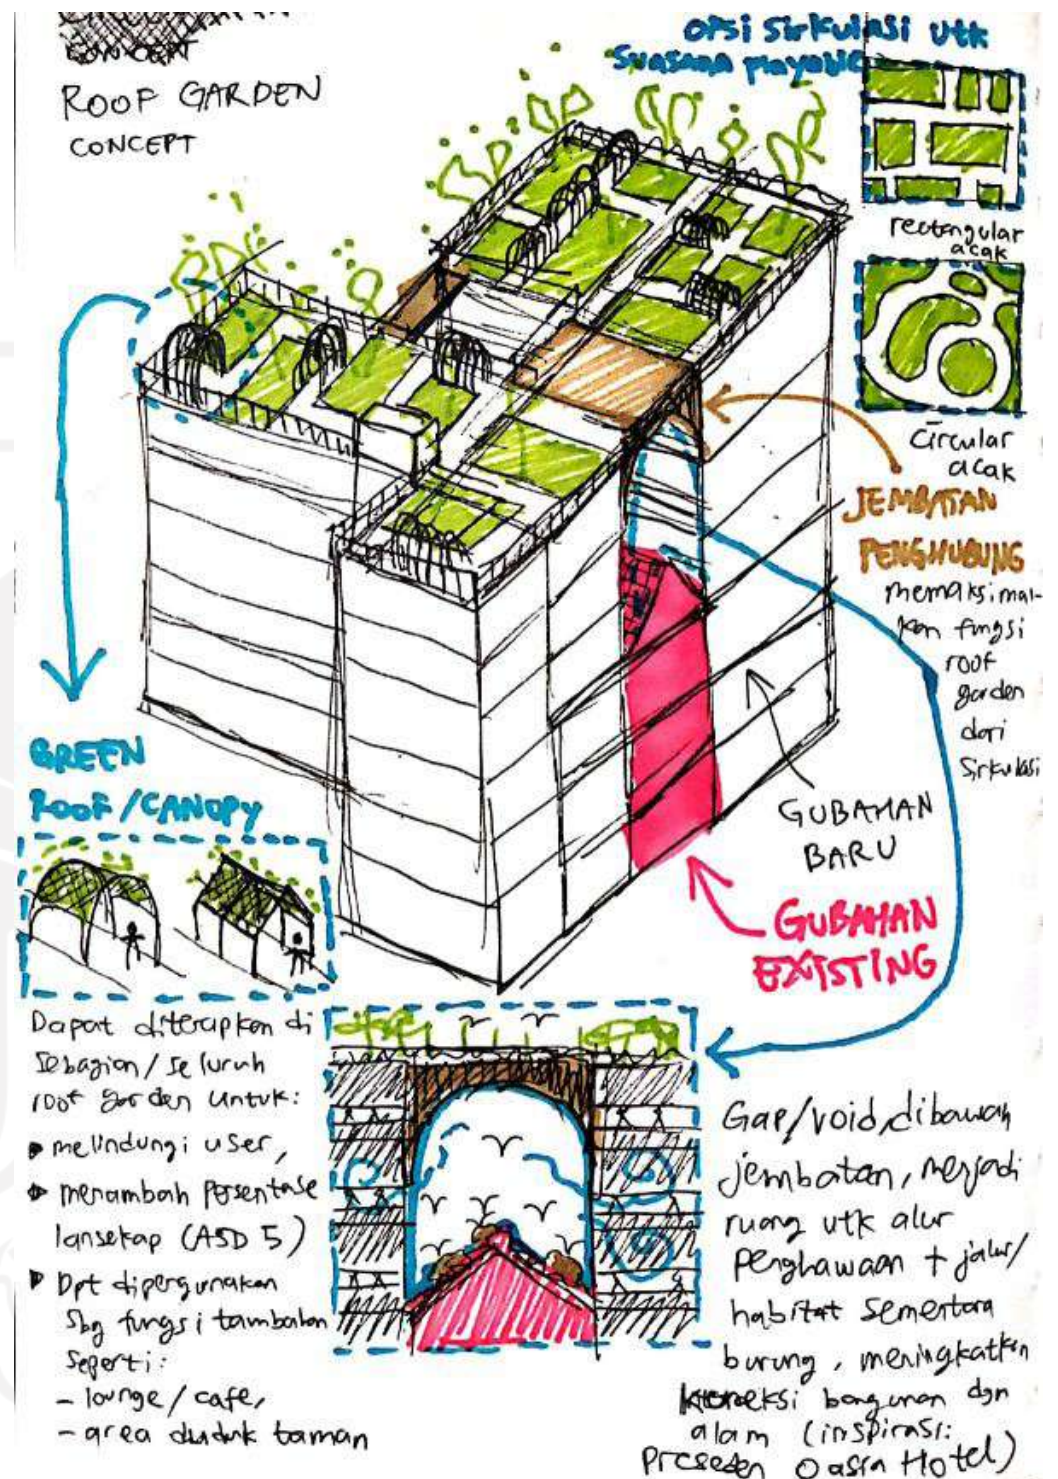 CONCEPT
ROOF GARDEN
CONCEPT
OPSI SIRKULASI UTK
SUASANA PLAYABLE
rectangular
acak
Circular
acak
JEMBATAN
PENGHUBUNG
memaksimal-
kan fungsi
roof
garden
dari
Sirkulasi
GUBAHAN
BARU
GUBAHAN
EXISTING
GREEN
ROOF/CANOPY
Dapat diterapkan di
sebagian/seluruh
roof garden untuk:
melindungi user,
menambah persentase
lansekap (ASD 5)
Dpt dipergunakan
sbg fungsi tambahan
seperti:
- lounge/cafe,
- area duduk taman
Gap/void, dibawah
jembatan, menjadi
ruang utk alur
penghawaan + jalur/
habitat sementara
burung, meningkatkan
koneksi bangunan dgn
alam (inspirasi:
preseden Oasia Hotel)